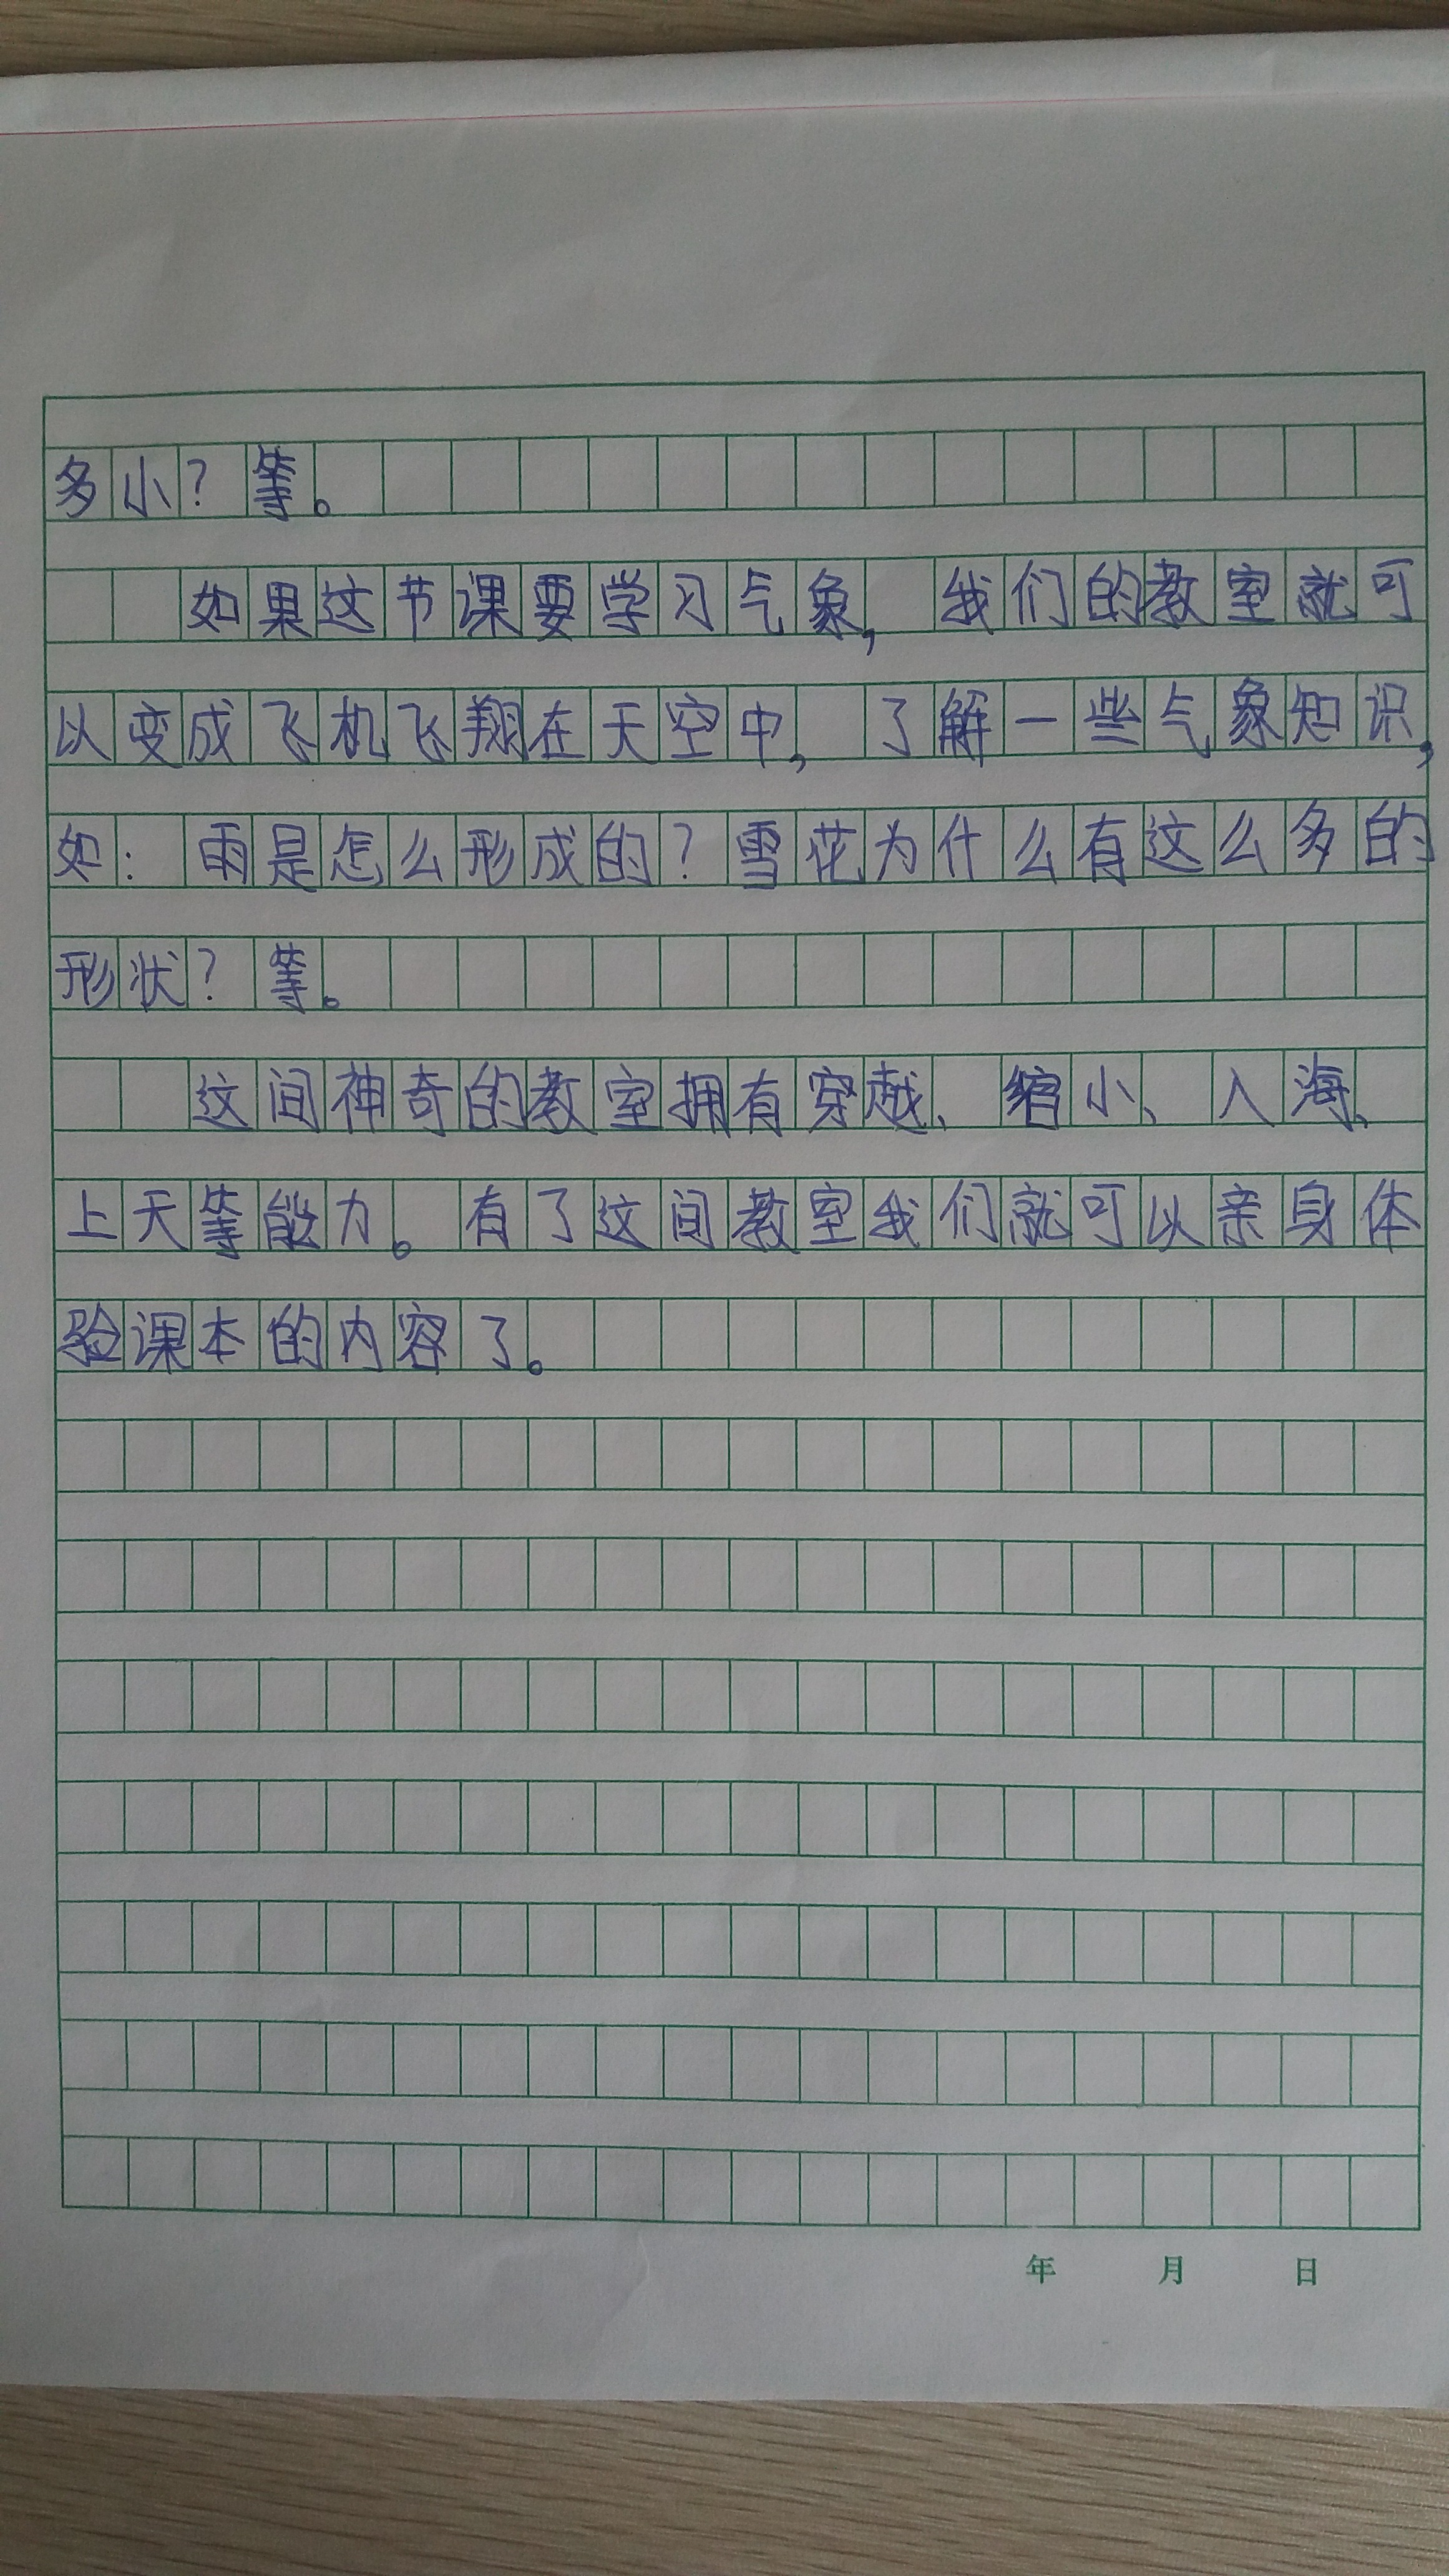 多小？等。
如果这节课要学习气象，我们的教室就可
以变成飞机飞翔在天空中，了解一些气象知识，
如：雨是怎么形成的？雪花为什么有这么多的
形状？等。
这间神奇的教室拥有穿越、缩小、入海、
上天等能力。有了这间教室我们就可以亲身体
验课本的内容了。
年 月 日